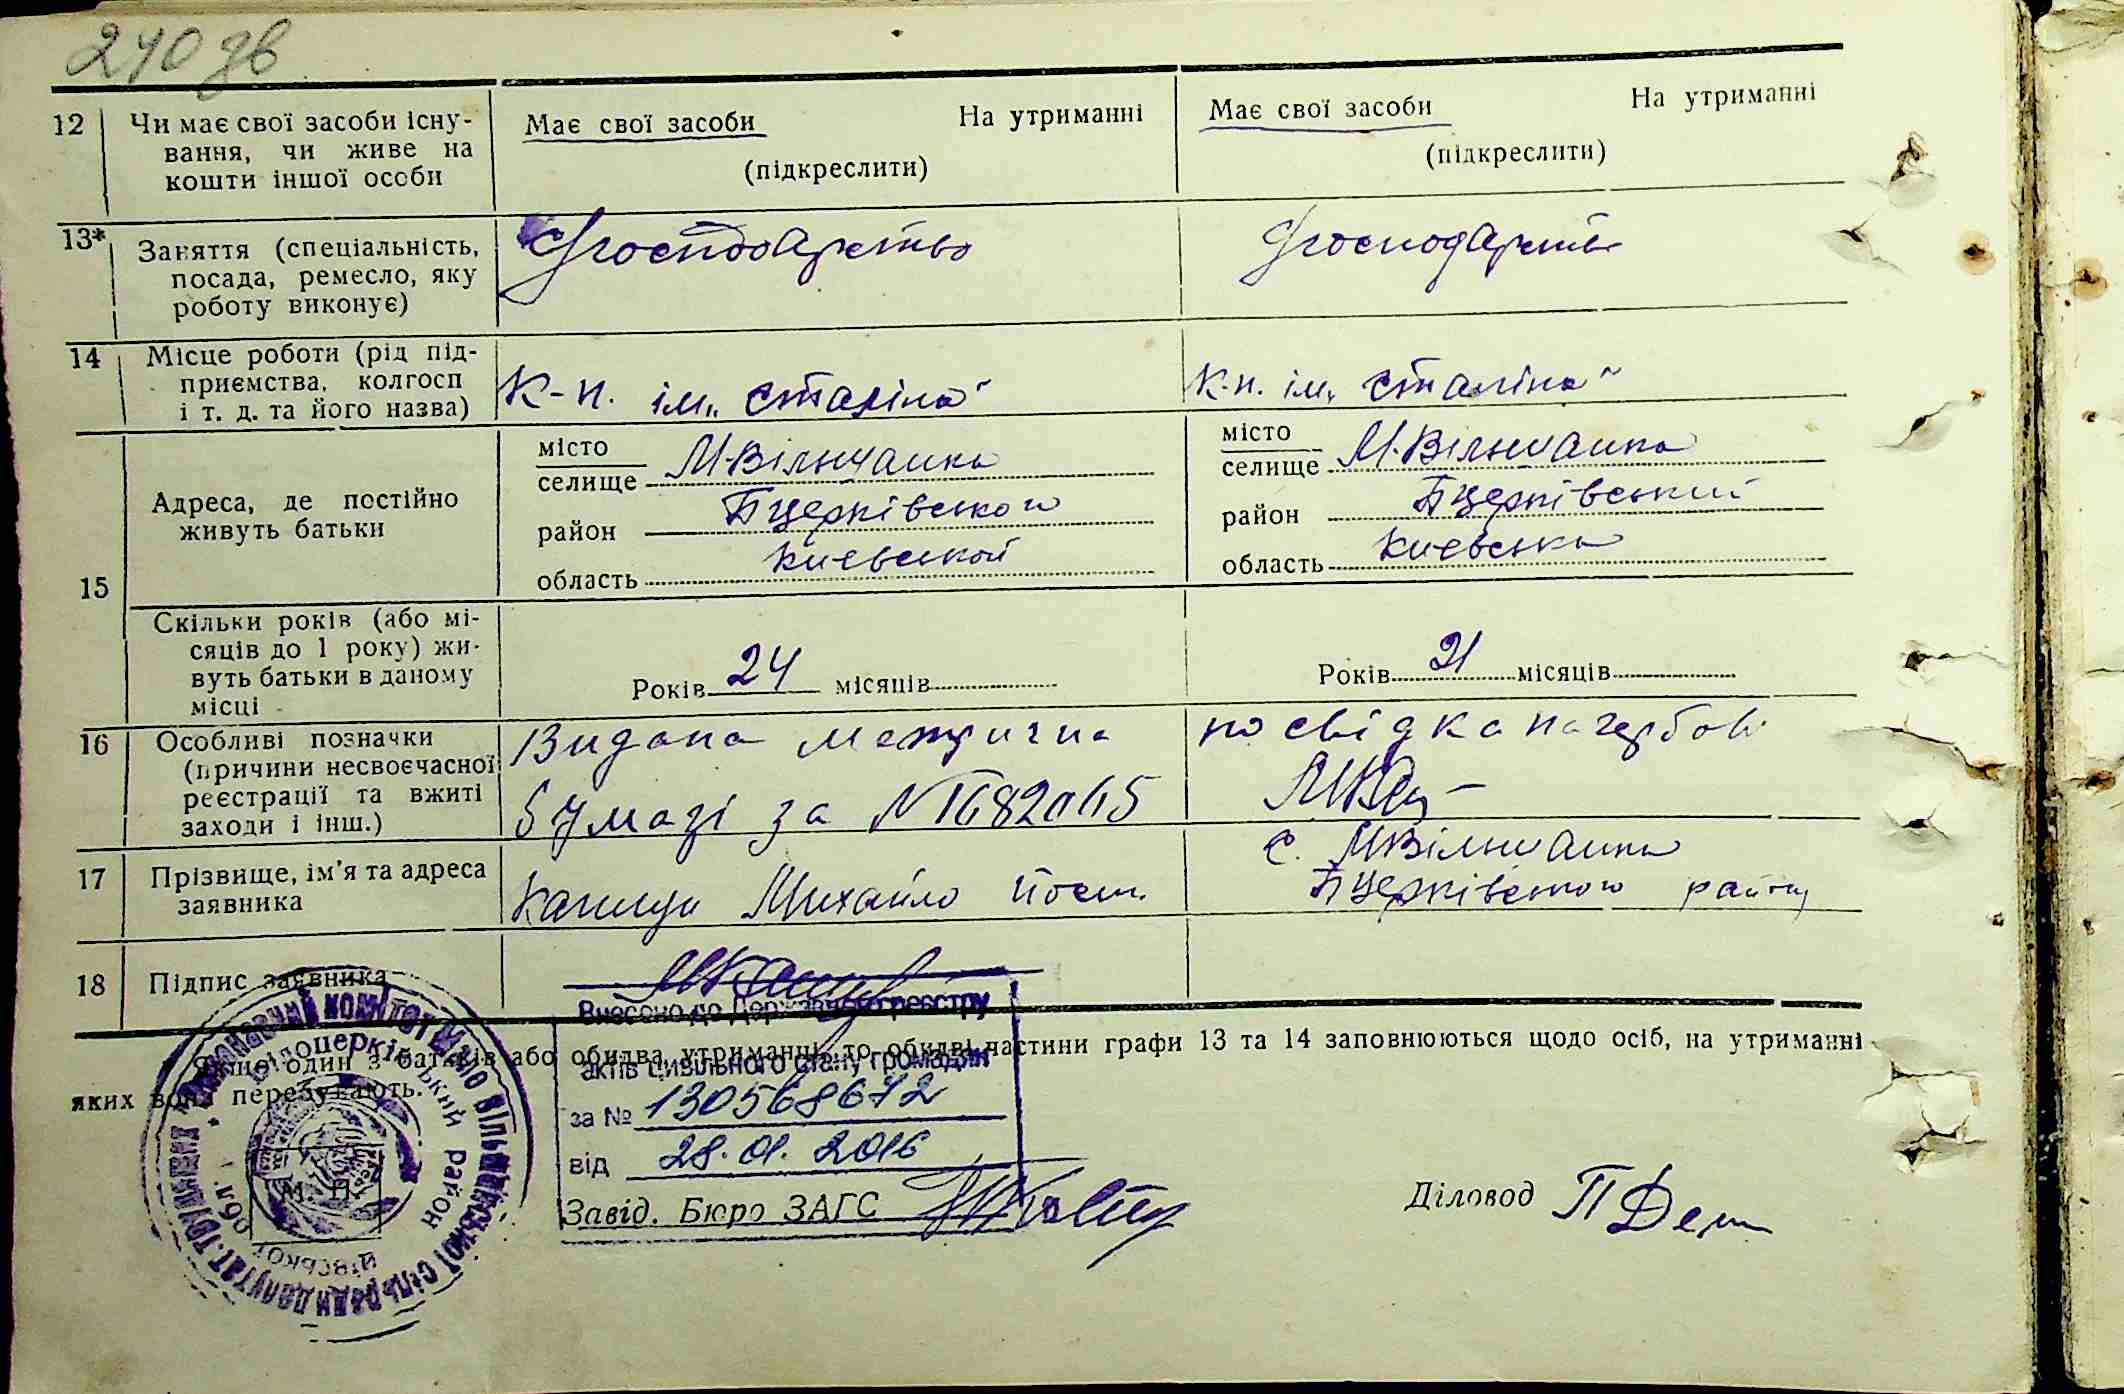 240 зв
12 Чи має свої засоби існу-
вання, чи живе на
кошти іншої особи
Має свої засоби На утриманні
(підкреслити)
Має свої засоби На утриманні
(підкреслити)
13* Заняття (спеціальність,
посада, ремесло, яку
роботу виконує)
господарство
господарств
14 Місце роботи (рід під-
приємства, колгосп
і т. д. та його назва)
К-п. ім. „Сталіна"
К-п. ім. „Сталіна"
15 Адреса, де постійно
живуть батьки
місто
селище М-Вільшанка
район Бцерківського
область Киевськой
місто
селище М. Вільшанка
район Бцерківський
область Киевська
Скільки років (або мі-
сяців до 1 року) жи-
вуть батьки в даному
місці
Років 24 місяців
Років 21 місяців
16 Особливі позначки
(причини несвоєчасної
реєстрації та вжиті
заходи і інш.)
Видана метрична посвідка на гербові
бумазі за №
17 Прізвище, ім'я та адреса
заявника
Михайло Йосип.
с. МВільшанка
Бцерківського району
18 Підпис заявника
Внесено до Державного реєстру
актів цивільного стану громадян
за № 130568672
від 28.01.2016
Якщо один з батьків або обидва утриманці, то обидві частини графи 13 та 14 заповнюються щодо осіб, на утриманні
яких вони перебувають.
М. П.
Завід. Бюро ЗАГС
Діловод
Білоцерківський район